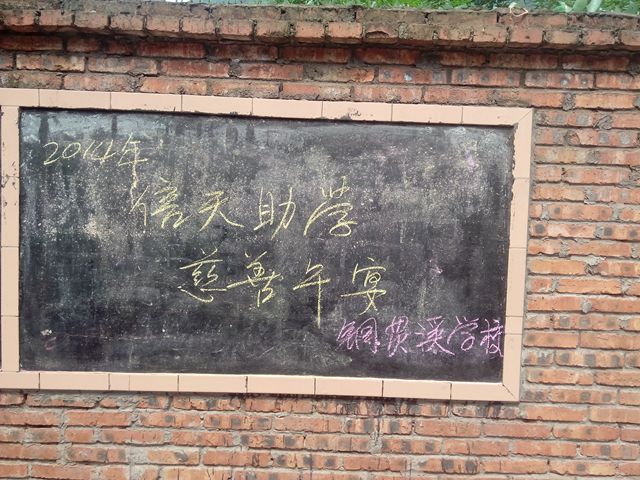 2014年
倍天助学
慈善午宴
铜贯溪学校